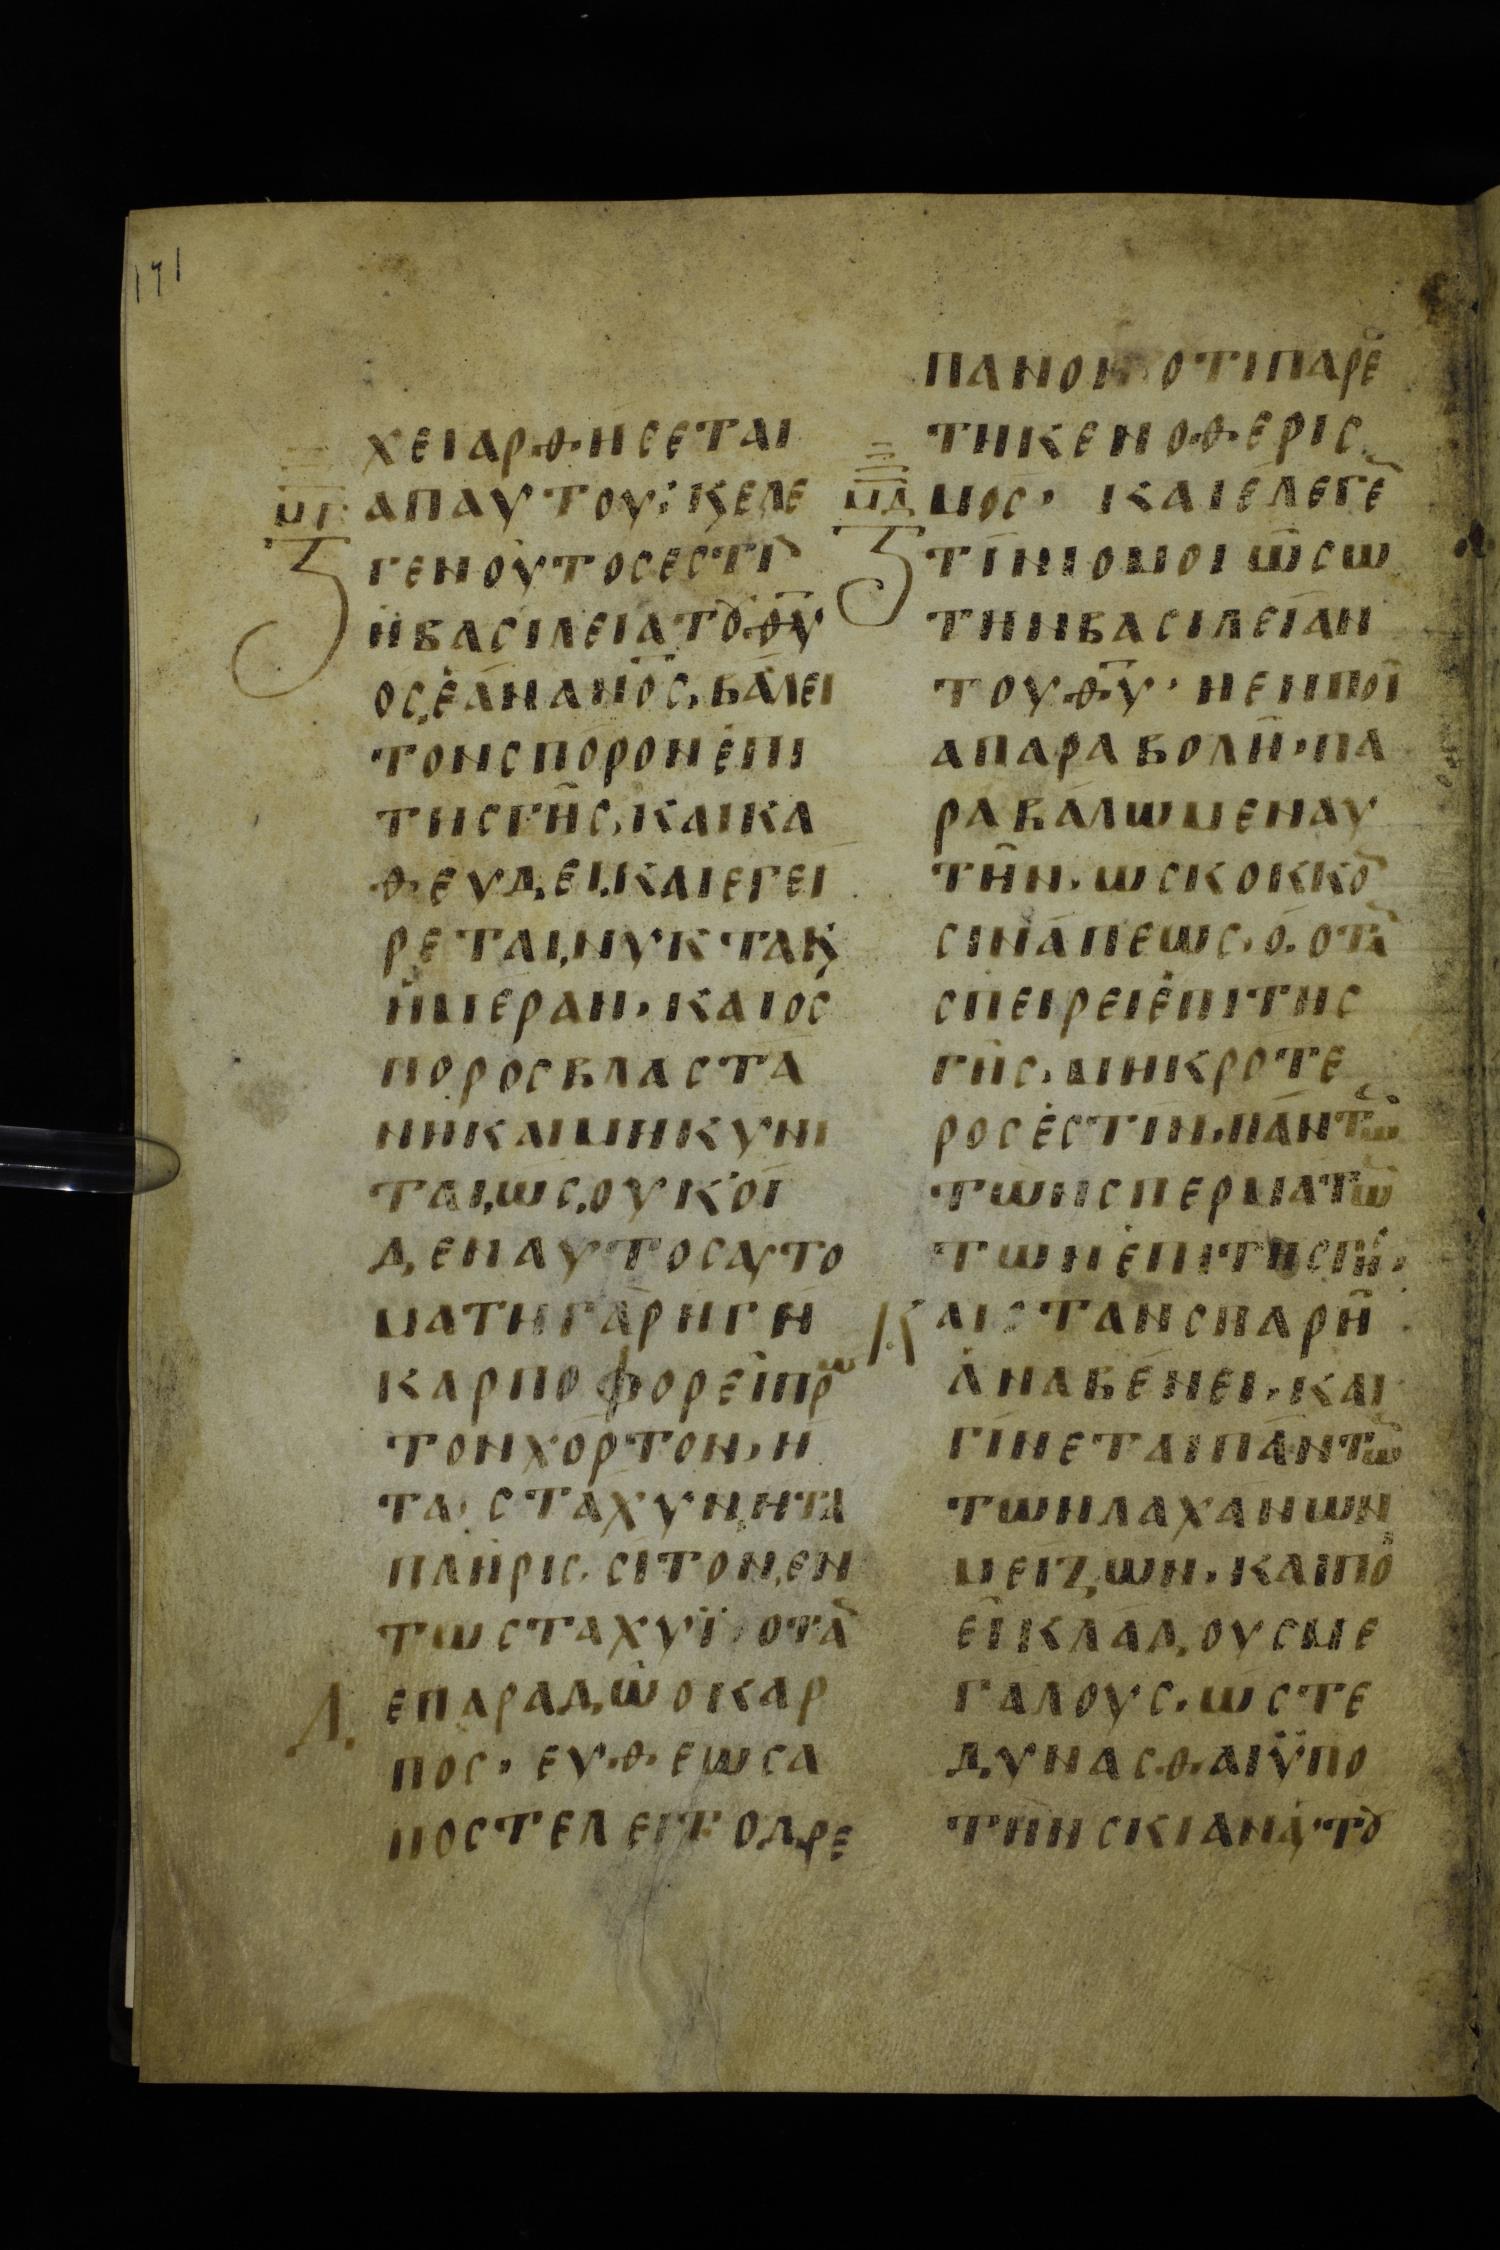 171
ΧΕΙΑΡΘΗСΕΤΑΙ
ΜΓ ΑΠΑΥΤΟΥ: ΚΕΛΕ
ΓΕΝΟΥΤΟСΕСΤΙ
ΗΒΑСΙΛΕΙΑΤȢΘΥ
ΟСΕΑΝΑΝΟС, ΒΑΛΕΙ
ΤΟΝСΠΟΡΟΝΕΠΙ
ΤΗСΓΗС, ΚΑΙΚΑ
ΘΕΥΔΕΙ, ΚΑΙΕΓΕΙ
ΡΕΤΑΙ, ΝΥΚΤΑΚ
ΗΜΕΡΑΝ, ΚΑΙΟС
ΠΟΡΟСΒΛΑСΤΑ
ΝΗΚΑΙΜΗΚΥΝΙ
ΤΑΙ, ωС, ΟΥΚΟΙ
ΔΕΝΑΥΤΟСΑΥΤΟ
ΜΑΤΗΓΑΡΗΓΗ
ΚΑΡΠΟΦΟΡΕΙΠΡω
ΤΟΝΧΟΡΤΟΝ, Η
ΤΑ, СΤΑΧΥΝ, ΗΤΑ
ΠΛΗΡΙС, СΙΤΟΝ, ΕΝ
ΤωСΤΑΧΥΪ, ΟΤΑ
Δ ΕΠΑΡΑΔωΟΚΑΡ
ΠΟС, ΕΥΘΕωСΑ
ΠΟСΤΕΛΕΙΤΟΔΡΕ
ΠΑΝΟΝΟΤΙΠΑΡΕ
ΤΗΚΕΝΟΘΕΡΙС
ΜΔ ΜΟС, ΚΑΙΕΛΕΓΕ
ΤΙΝΙΟΜΟΙωСω
ΤΗΝΒΑСΙΛΕΙΑΝ
ΤΟΥΘΥ, ΗΕΝΠΟΙ
ΑΠΑΡΑΒΟΛΗ, ΠΑ
ΡΑΒΑΛωΜΕΝΑΥ
ΤΗΝ, ωСΚΟΚΚȢ
СΙΝΑΠΕωС, Ο, ΟΤΑ
СΠΕΙΡΕΙΕΠΙΤΗС
ΓΗС, ΜΗΚΡΟΤΕ
ΡΟСΕСΤΙΝ, ΠΑΝΤω
ΤωΝСΠΕΡΜΑΤω
ΤωΝΕΠΙΤΗСΓΗС,
ΚΑΙΟΤΑΝСΠΑΡΗ
ΑΝΑΒΕΝΕΙ, ΚΑΙ
ΓΙΝΕΤΑΙΠΑΝΤω
ΤωΝΛΑΧΑΝωΝ
ΜΕΙΖωΝ, ΚΑΙΠΟ
ΕΙΚΛΑΔΟΥСΜΕ
ΓΑΛΟΥС, ωСΤΕ
ΔΥΝΑСΘΑΙΫΠΟ
ΤΗΝСΚΙΑΝΑΥΤȢ